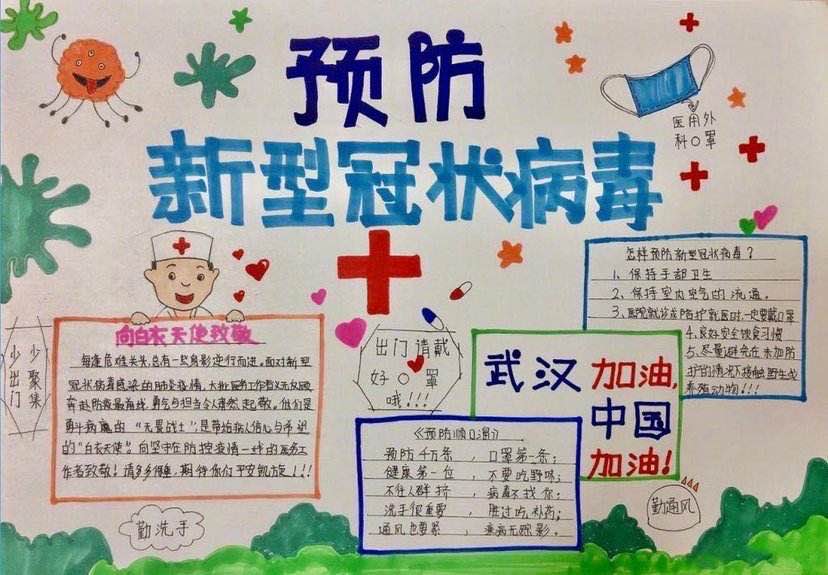 预防
新型冠状病毒
医用外
科口罩
向白衣天使致敬
每逢危难关头,总有一些身影逆行而进。面对新型
冠状病毒感染的肺炎疫情,
奔赴防疫最前线,勇气与担当令人肃然起敬。他们是
与病魔的“无畏战士”,是带给病人信心与希望
的“白衣天使”。向坚守在防控疫情一线的医务工
作者致敬!请多多保重,期待你们平安凯旋!!!
少聚集
少出门
出门请戴
好口罩
哦!!!
怎样预防新型冠状病毒?
1、保持手部卫生
2、保持室内空气的流通。
3、医院就诊或陪护就医时一定要戴口罩
4、良好安全饮食习惯
5、尽量避免在未加防
护的情况下接触野生或
养殖动物!!!
武汉加油,
中国
加油!
《预防顺口溜》
预防千万条,口罩第一条;
健康第一位,不要吃野味;
不往人群挤,病毒不找你;
洗手很重要,胜过吃补药;
通风也要紧,毒病无踪影。
勤洗手
勤通风